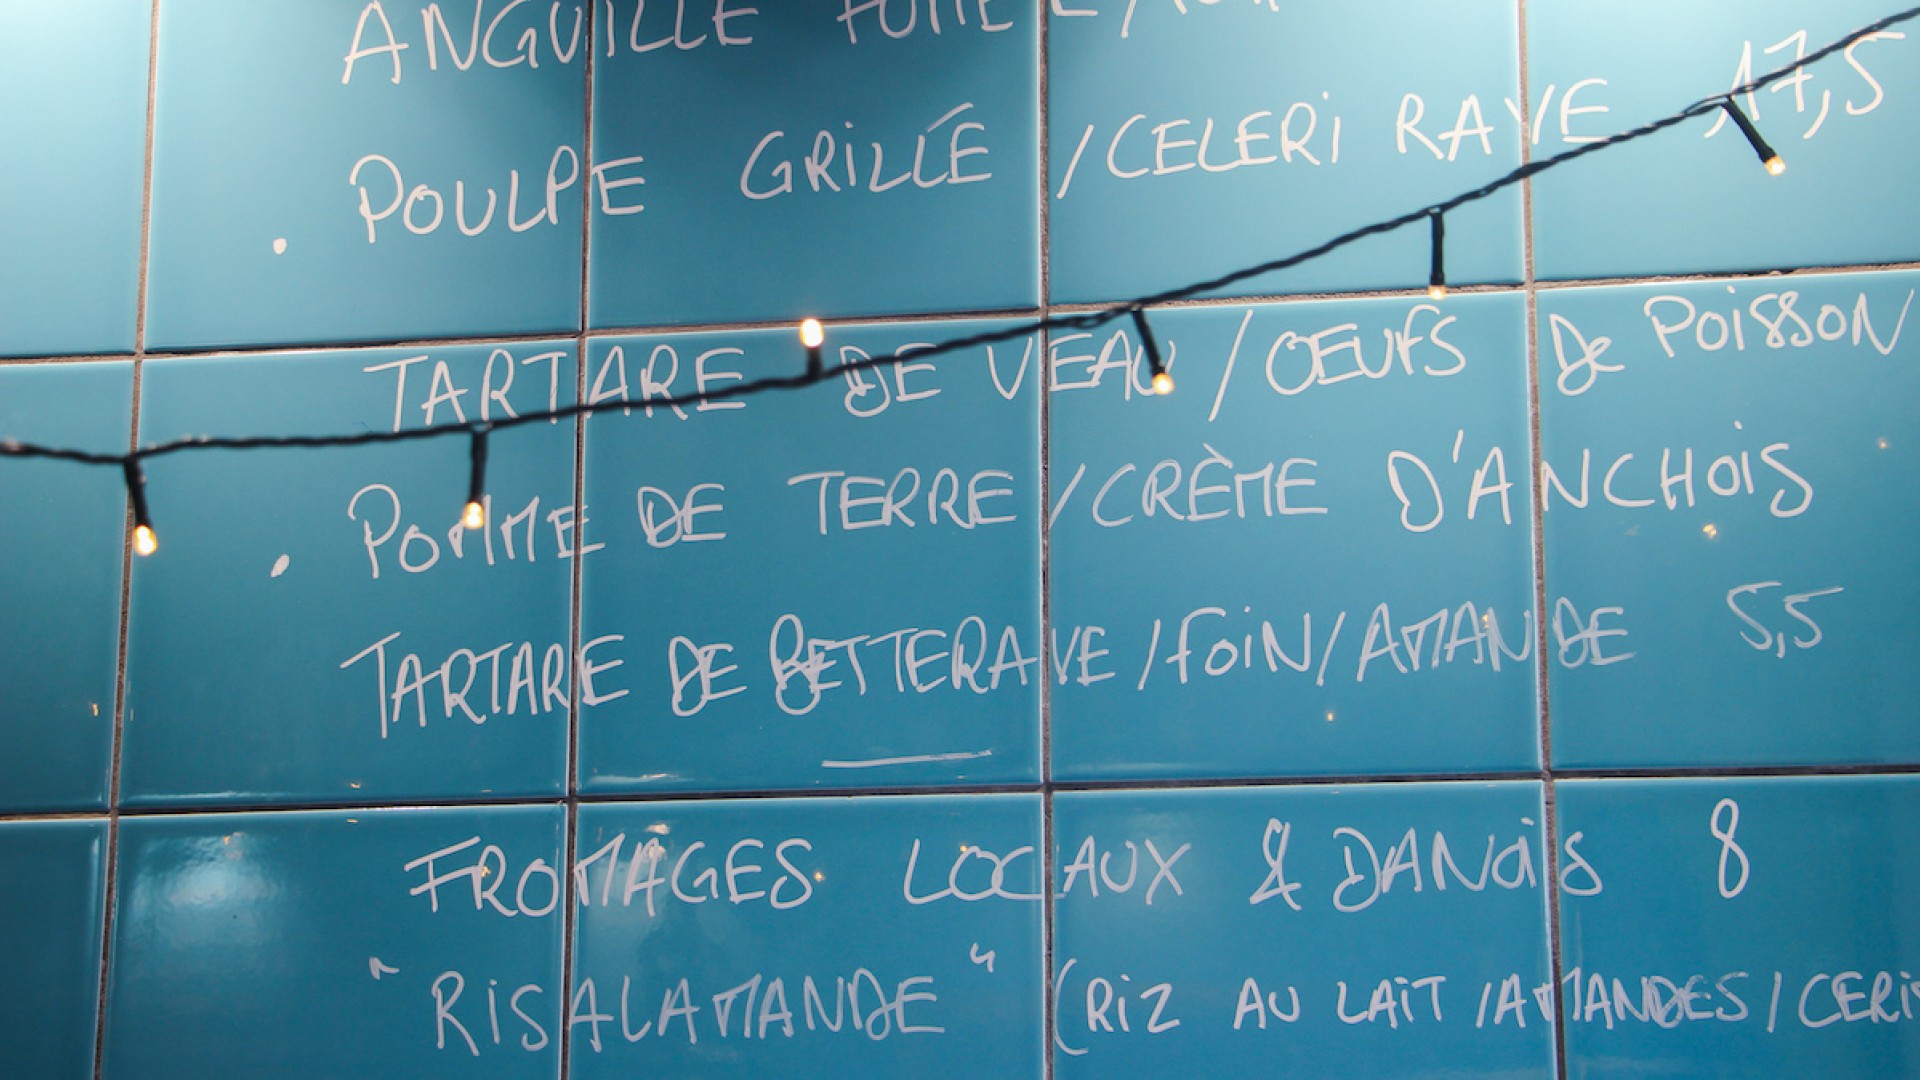 ANGUILLE FUMÉE /
. POULPE GRILLÉ /CELERI RAVE 17,5
TARTARE DE VEAU /OEUFS De POISSON
. POMME DE TERRE /CRÈME D'ANCHOIS
TARTARE DE BETTERAVE /FOIN/AMANDE 5,5
FROMAGES LOCAUX & DANOIS 8
"RISALAMANDE" (RIZ AU LAIT /AMANDES /CERIS